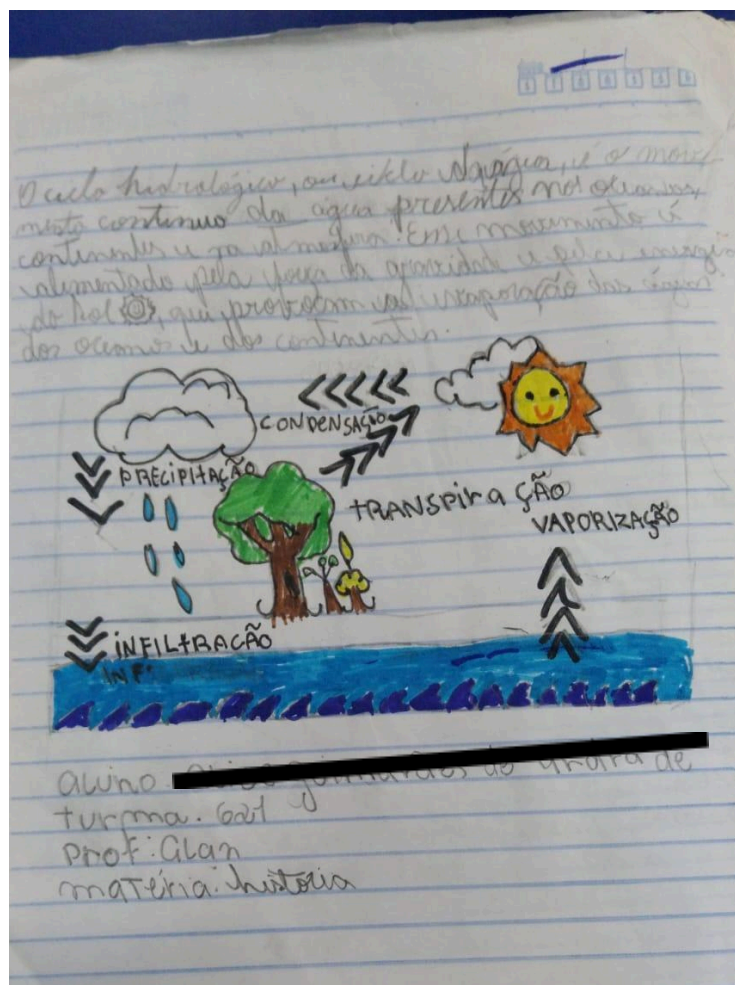 O ciclo hidrológico, ou ciclo da água, é o movi-
mento continuo da água presentes nos oceanos,
continentes e na atmosfera. Esse movimento é
alimentado pela força da gravidade e pela energia
do Sol, que provocam a evaporação das águas
dos oceanos e dos continentes.
CONDENSAÇÃO
PRECIPITAÇÃO
TRANSPIRAÇÃO
VAPORIZAÇÃO
INFILTRAÇÃO
INF
aluno de
turma. 621
Prof: Alan
matéria: história